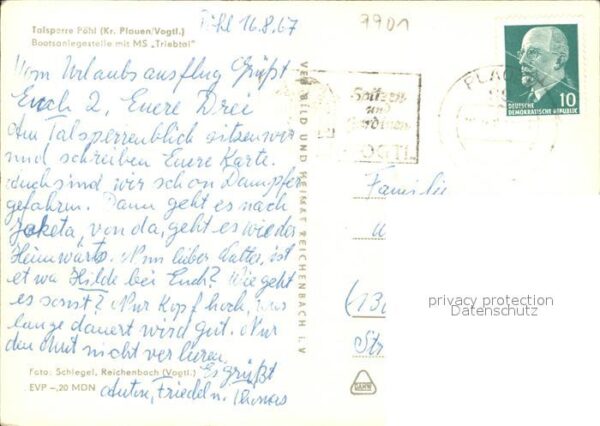 Talsperre Pöhl (Kr. Plauen/Vogtl.)
Bootsanlegestelle mit MS „Triebtal"
Pöhl 16.8.67
7901
Vom Urlaubsausflug Grüßt
Euch 2, Euere Drei
Am Talsperrenblick sitzen wir
und schreiben Euere Karte.
Auch sind wir schon Dampfer
gefahren. Dann geht es nach
Jocketa, von da, geht es wieder
Heimwärts. Nun lieber Vatter, ist
etwa Hilde bei Euch? Wie geht
es sonst? Nur Kopf hoch, was
lange dauert wird gut. Nur
den Mut nicht verlieren.
Es grüßt
Anton, Friedel u. Thomas
Foto: Schlegel, Reichenbach (Vogtl.)
EVP –,20 MDN
VEB BILD UND HEIMAT REICHENBACH i. V.
Spitzen
und
Gardinen
VOGTL
PLAUEN
DEUTSCHE
DEMOKRATISCHE REPUBLIK
10
Familie
(130
Str
privacy protection
Datenschutz